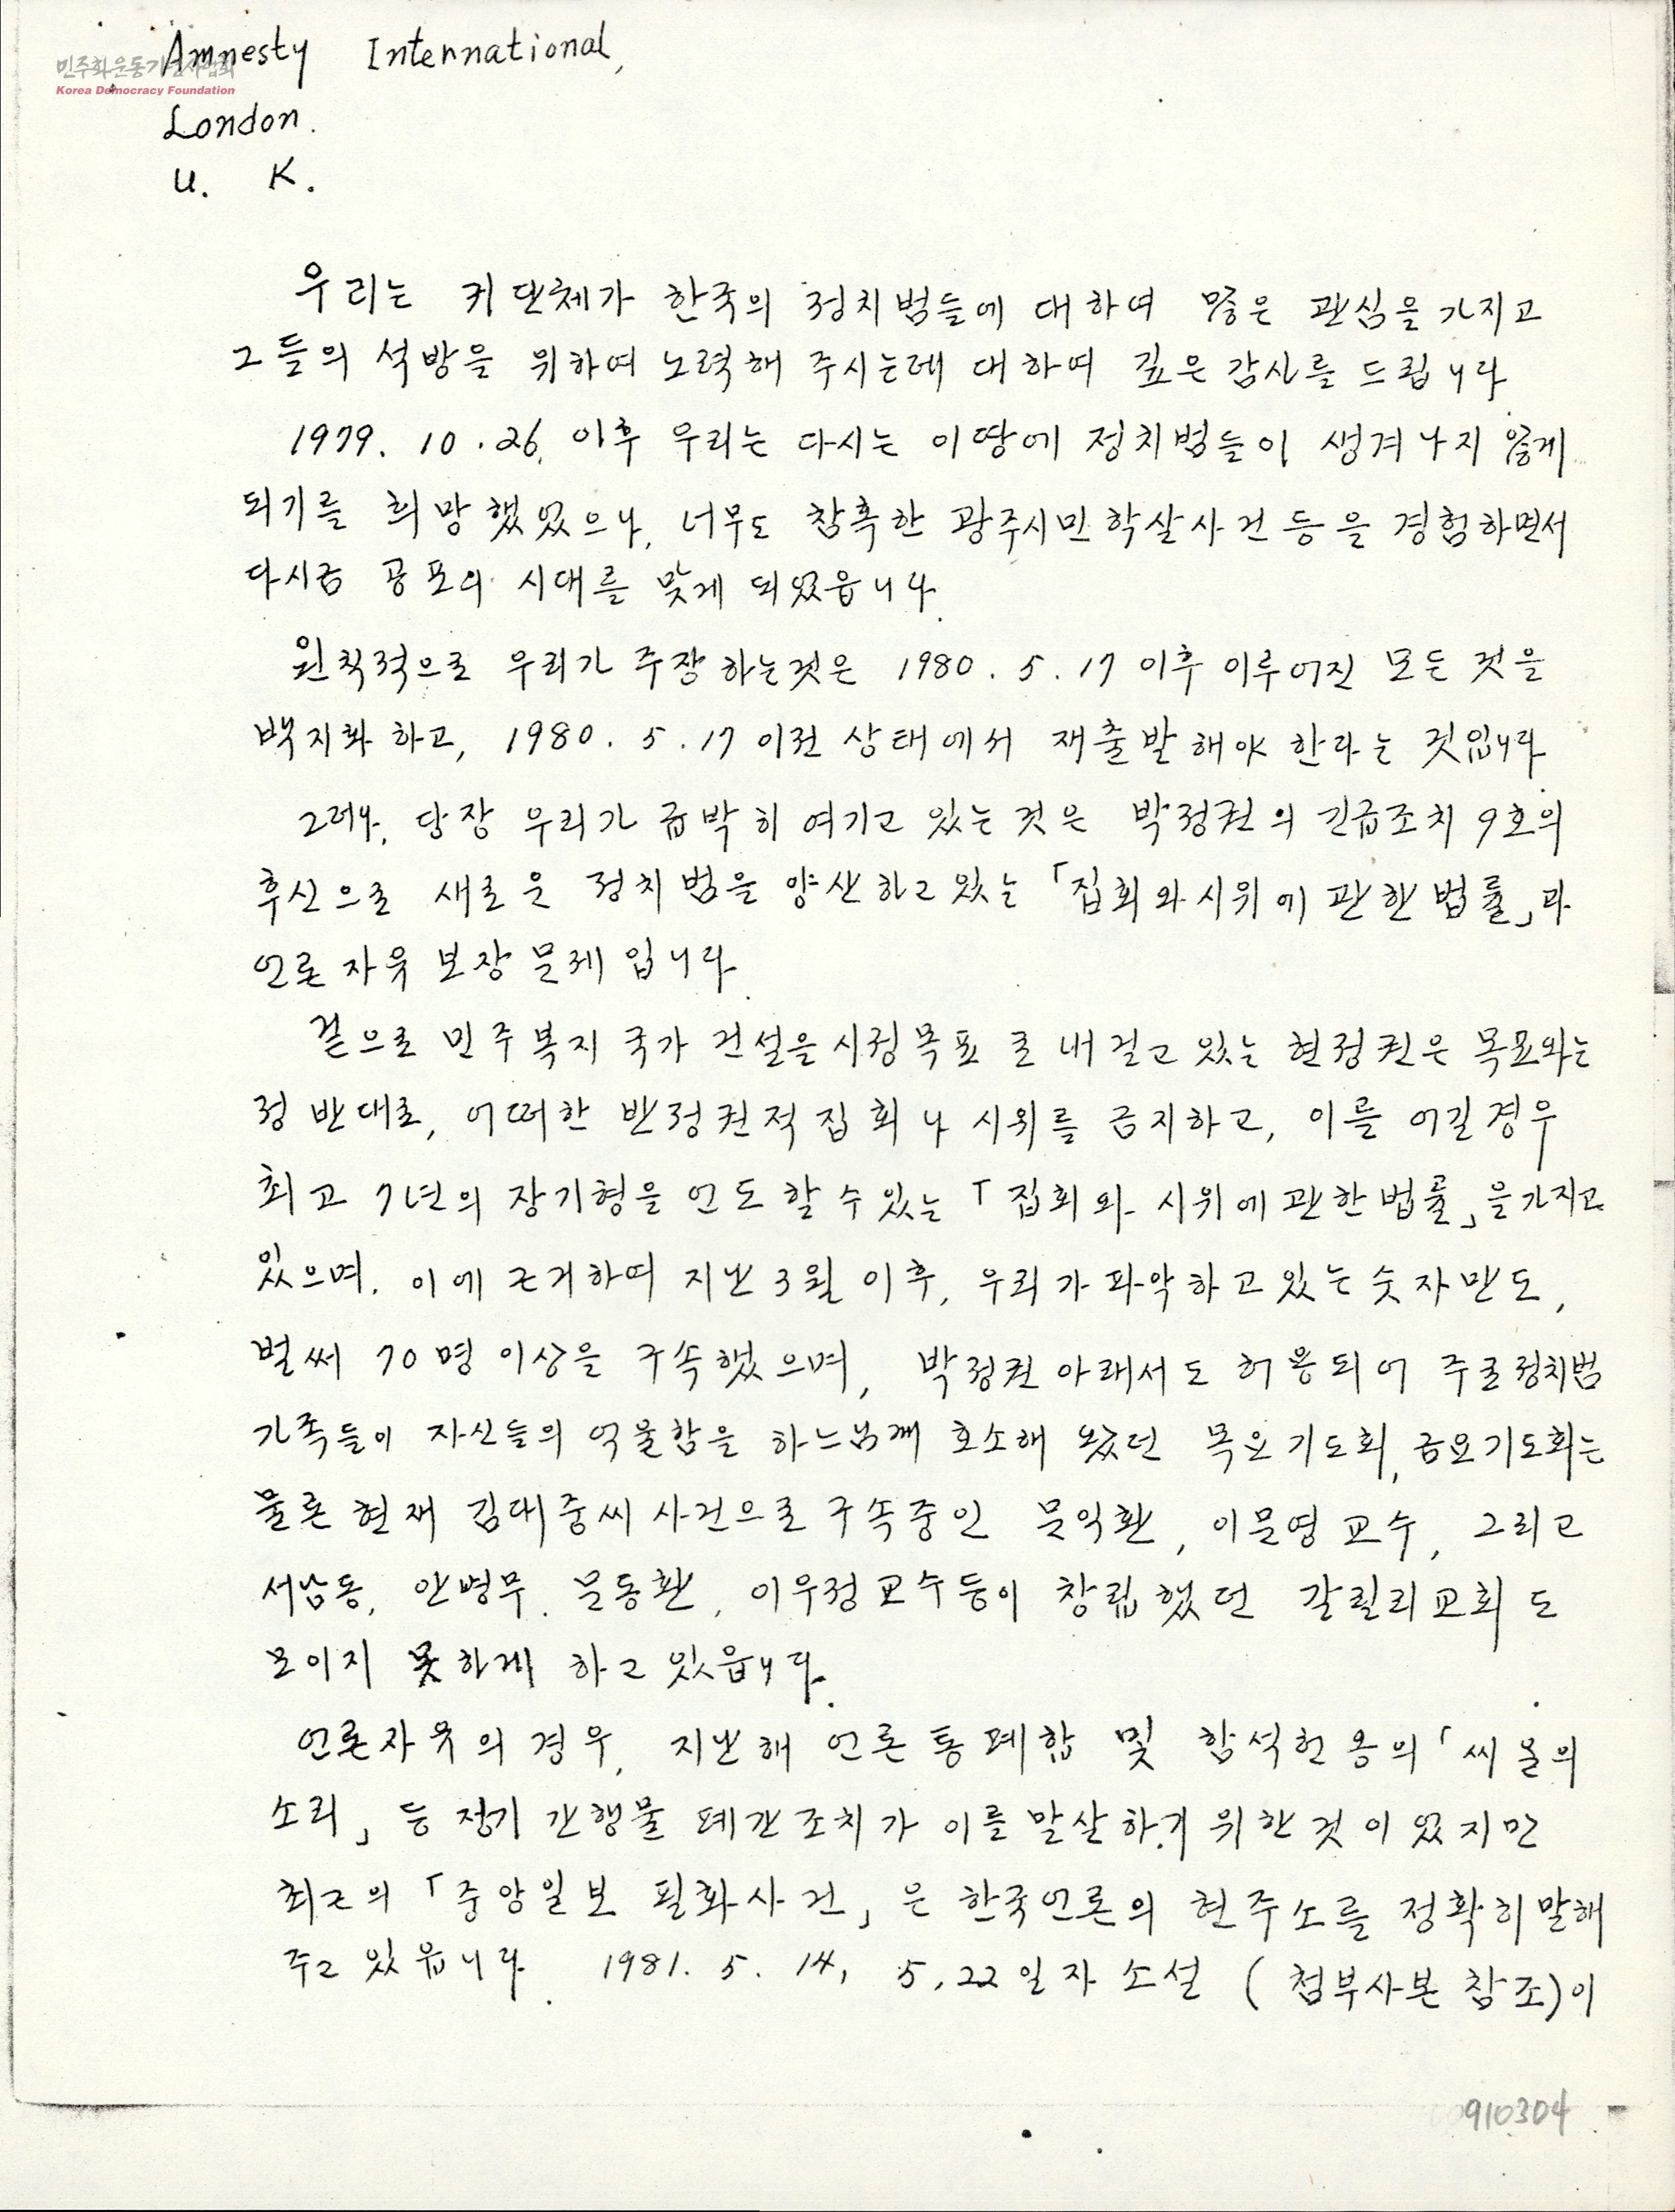 Amnesty International,
민주화운동기념사업회
Korea Democracy Foundation
London.
U. K.
우리는 귀단체가 한국의 정치범들에 대하여 많은 관심을 가지고
그들의 석방을 위하여 노력해 주시는데 대하여 깊은 감사를 드립니다.
1979. 10. 26. 이후 우리는 다시는 이땅에 정치범들이 생겨나지 않게
되기를 희망했었으나, 너무도 참혹한 광주시민학살사건 등을 경험하면서
다시금 공포의 시대를 맞게 되었읍니다.
원칙적으로 우리가 주장하는것은 1980. 5. 17 이후 이루어진 모든 것을
백지화 하고, 1980. 5. 17 이전 상태에서 재출발해야 한다는 것입니다.
그러나, 당장 우리가 급박히 여기고 있는 것은 박정권의 긴급조치 9호의
후신으로 새로운 정치범을 양산하고 있는 「집회와 시위에 관한 법률」과
언론자유 보장 문제입니다.
겉으로 민주복지 국가 건설을 시정목표로 내걸고 있는 현정권은 목표와는
정반대로, 어떠한 반정권적 집회나 시위를 금지하고, 이를 어길경우
최고 7년의 장기형을 언도할 수 있는 「집회와 시위에 관한 법률」을 가지고
있으며, 이에 근거하여 지난 3월 이후, 우리가 파악하고 있는 숫자만도,
벌써 70명 이상을 구속했으며, 박정권 아래서도 허용되어 주로 정치범
가족들이 자신들의 억울함을 하느님께 호소해 왔던 목요기도회, 금요기도회는
물론 현재 김대중씨 사건으로 구속중인 문익환, 이문영 교수, 그리고
서남동, 안병무, 문동환, 이우정 교수등이 창립했던 갈릴리교회도
모이지 못하게 하고 있읍니다.
언론자유의 경우, 지난해 언론통폐합 및 함석헌 옹의 「씨올의
소리」 등 정기 간행물 폐간조치가 이를 말살하기 위한 것이었지만
최근의 「중앙일보 필화사건」은 한국언론의 현주소를 정확히 말해
주고 있읍니다. 1981. 5. 14, 5. 22일자 소설 (첨부사본 참조)이
910304